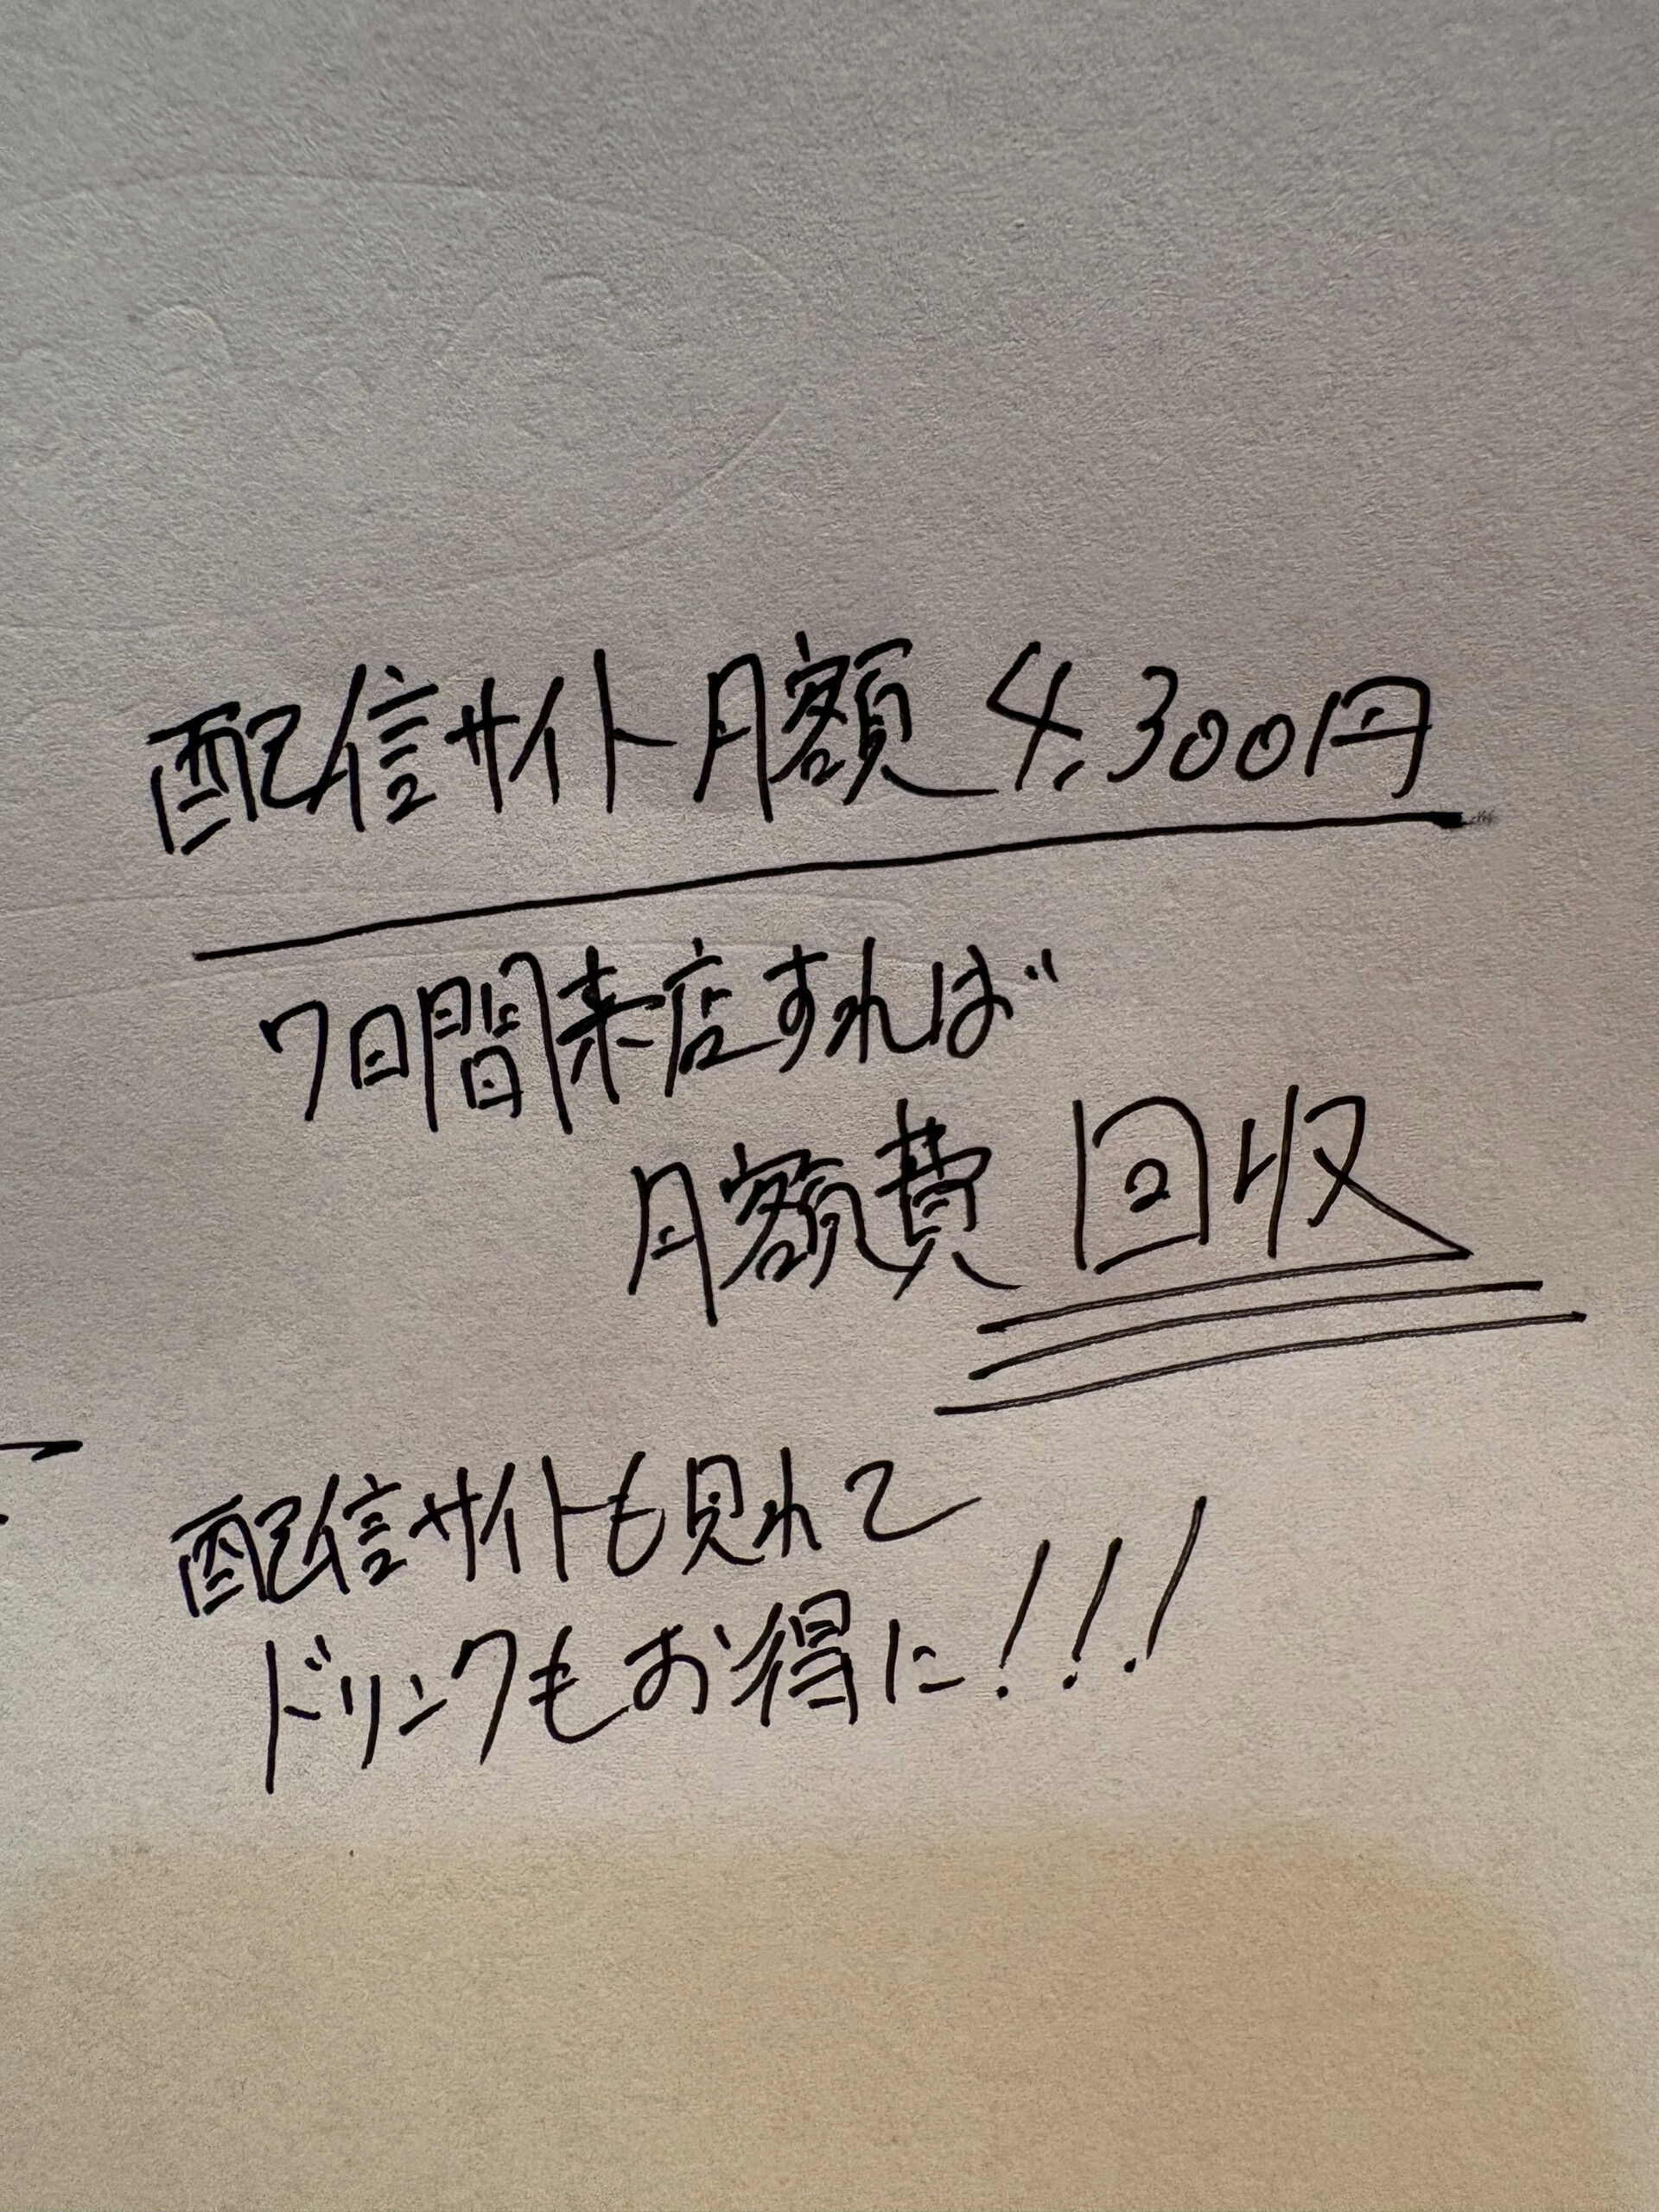 配信サイト月額 4,300円
7日間来店すれば
月額費 回収
配信サイトも見れて
ドリンクもお得に!!!